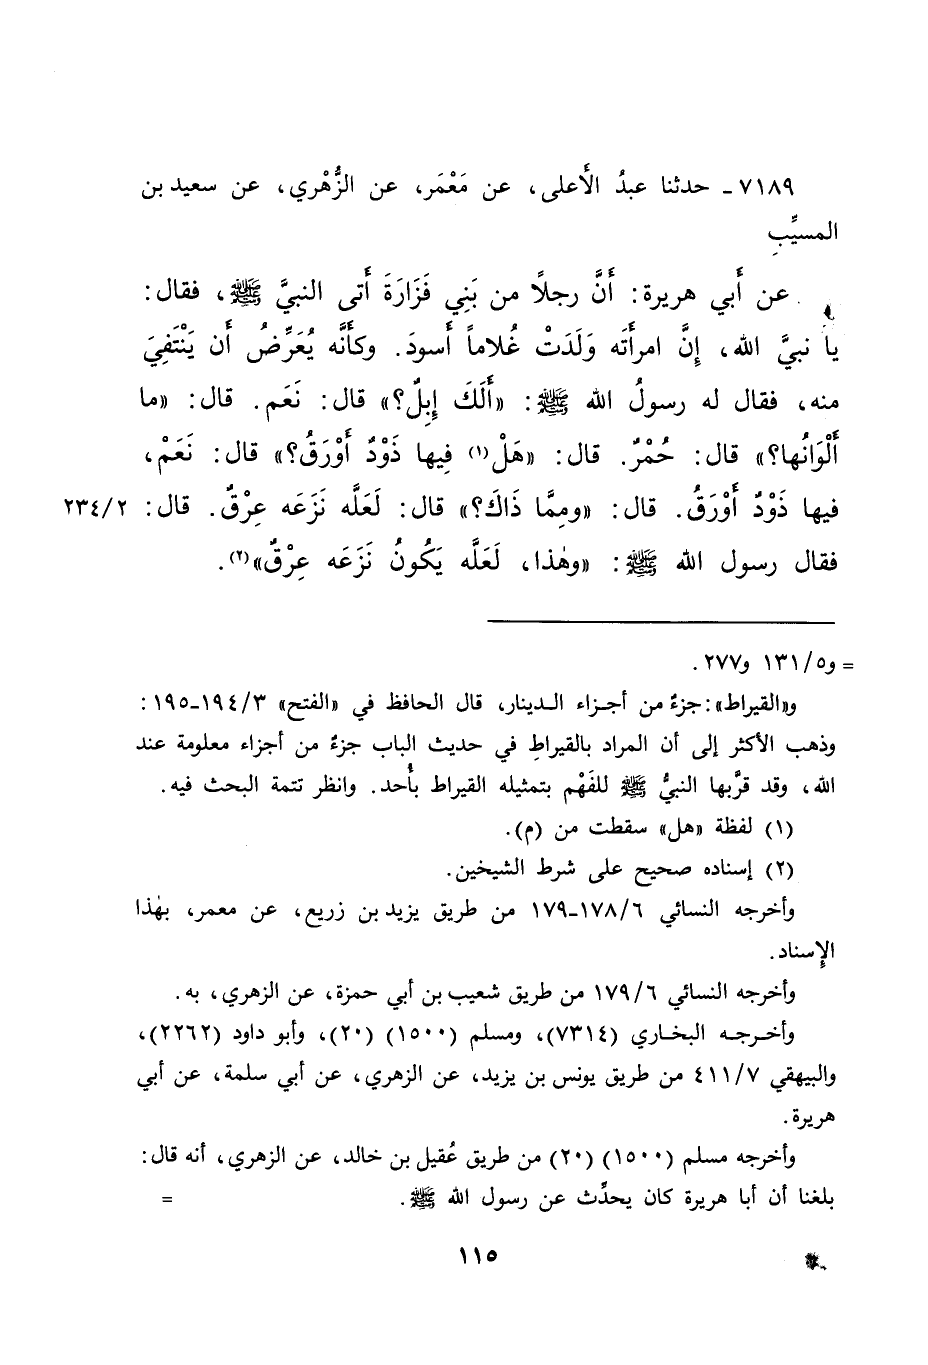 ٧١٨٩ ـ حدثنا عبدُ الأَعلى، عن مَعْمَر، عن الزُّهْري، عن سعيد بن
المسيِّبِ
عن أَبي هريرة: أَنَّ رجلاً من بَنِي فَزَارَةَ أَتى النبيَّ ﷺ، فقال:
يا نبيَّ الله، إِنَّ امرأَتَه وَلَدَتْ غُلاماً أَسودَ. وكأَنَّه يُعَرِّضُ أَن يَنْتَفِيَ
منه، فقال له رسولُ الله ﷺ: «أَلَكَ إِبِلٌ؟» قال: نَعَم. قال: «ما
أَلْوَانُها؟» قال: حُمْرٌ. قال: «هَلْ(١) فِيها ذَوْدٌ أَوْرَقُ؟» قال: نَعَمْ،
فيها ذَوْدٌ أَوْرَقُ. قال: «ومِمَّا ذَاكَ؟» قال: لَعَلَّه نَزَعَه عِرْقٌ. قال: ٢٣٤/٢
فقال رسول الله ﷺ: «وهٰذا، لَعَلَّه يَكُونُ نَزَعَه عِرْقٌ»(٢).
= و٥/ ١٣١ و٢٧٧.
و«القيراط»: جزءٌ من أجزاء الدينار، قال الحافظ في «الفتح» ٣/ ١٩٤ـ١٩٥:
وذهب الأكثر إلى أن المراد بالقيراطِ في حديث الباب جزءٌ من أجزاء معلومة عند
الله، وقد قرَّبها النبيُّ ﷺ للفَهْم بتمثيله القيراط بأُحد. وانظر تتمة البحث فيه.
(١) لفظة «هل» سقطت من (م).
(٢) إسناده صحيح على شرط الشيخين.
وأخرجه النسائي ٦/ ١٧٨ـ١٧٩ من طريق يزيد بن زريع، عن معمر، بهٰذا
الإِسناد.
وأخرجه النسائي ٦/ ١٧٩ من طريق شعيب بن أبي حمزة، عن الزهري، به.
وأخرجه البخاري (٧٣١٤)، ومسلم (١٥٠٠) (٢٠)، وأبو داود (٢٢٦٢)،
والبيهقي ٧/ ٤١١ من طريق يونس بن يزيد، عن الزهري، عن أبي سلمة، عن أبي
هريرة.
وأخرجه مسلم (١٥٠٠) (٢٠) من طريق عُقيل بن خالد، عن الزهري، أنه قال:
بلغنا أن أبا هريرة كان يحدِّث عن رسول الله ﷺ. =
١١٥